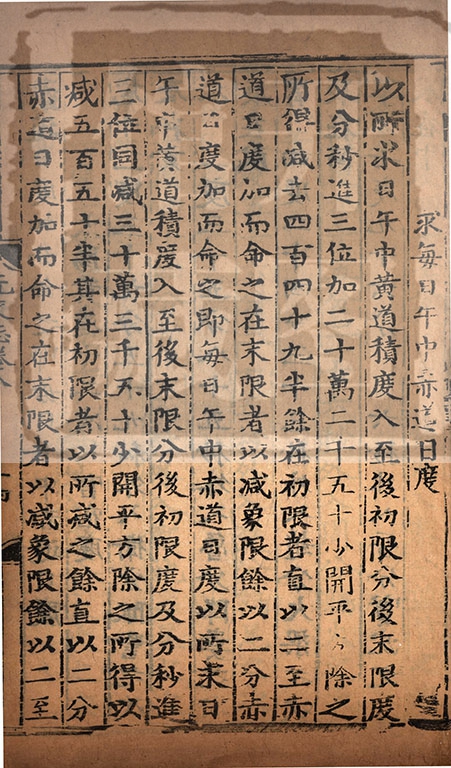 求每日午中赤道日度
以所求日午中黄道積度入至後初限分後末限度
及分秒進三位加二十萬二千五十少開平方除之
所得減去四百四十九半餘在初限者直以二至赤
道日度加而命之在末限者以減象限餘以二分赤
道日度加而命之即每日午中赤道日度以所求日
午中黄道積度入至後末限分後初限度及分秒進
三位同減三十萬三千五十少開平方除之所得以
減五百五十半其在初限者以所減之餘直以二分
赤道日度加而命之在末限者以減象限餘以二至